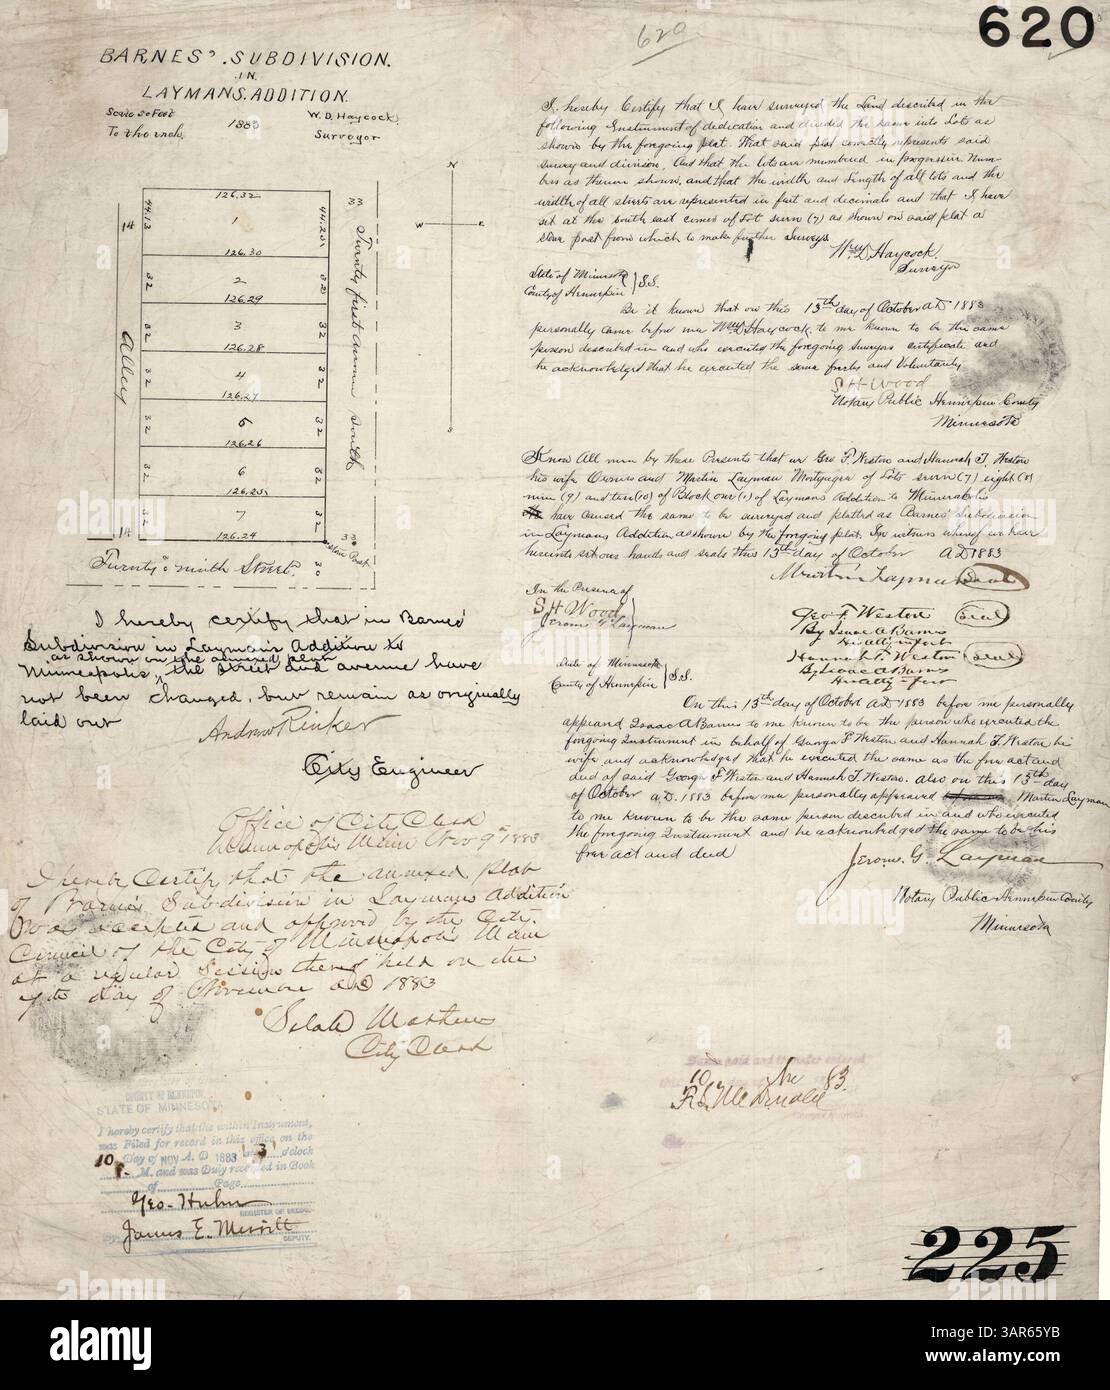 620
620
BARNES' SUBDIVISION.
IN
LAYMANS ADDITION.
Scale 30 Feet
To the inch.
1883
W. D. Haycock
Surveyor
N
W E
S
126.32
44.13
1
44.20
33
14
126.30
32 2 32
126.29
32 3 32
126.28
32 4 32
126.27
32 5 32
126.26
32 6 32
126.25
32 7 32
126.24
14
33
30
Alley
Twenty first Avenue South
Stone Post
Twenty ninth Street.
I hereby certify that in Barnes'
Subdivision in Layman's Addition to
as shown on the annexed plan
Minneapolis, the street and avenue have
not been changed, but remain as originally
laid out
Andrew Rinker
City Engineer
Office of City Clerk
Minneapolis Minn Nov 9th 1883
I hereby Certify that the annexed plat
of Barnes Subdivision in Laymans Addition
was accepted and approved by the City
Council of the City of Minneapolis Minn
at a regular Session thereof held on the
7th day of November AD 1883
Selah Matthews
City Clerk
COUNTY OF HENNEPIN
STATE OF MINNESOTA
I hereby certify that the within Instrument,
was Filed for record in this office on the
10 Day of NOV A. D 1883 at 3 o'clock
P. M. and was Duly recorded in Book
of Page
Geo. Huhn
REGISTER OF DEEDS.
By James E. Merritt
DEPUTY.
I, hereby Certify that I have surveyed the Land described in the
following Instrument of dedication and divided the same into Lots as
shown by the foregoing plat. That said plat correctly represents said
survey and division. And that the lots are numbered in progressive Num-
bers as therein shown, and that the width and length of all lots and the
width of all streets are represented in feet and decimals and that I have
set at the south east corner of Lot seven (7) as shown on said plat a
stone post from which to make further Surveys
Wm D. Haycock.
Surveyor
State of Minnesota
County of Hennepin } S.S.
Be it known that on this 13th day of October A.D 1883
personally came before me Wm D. Haycock, to me known to be the same
person described in and who executed the foregoing surveyors certificate and
he acknowledged that he executed the same freely and Voluntarily
S H Wood
Notary Public Hennepin County
Minnesota
Know All men by these Presents that we Geo F. Weston and Hannah T. Weston
his wife Owners and Martin Layman Mortgagee of Lots seven (7) eight (8)
nine (9) and ten (10) of Block one (1) of Laymans Addition to Minneapolis
have caused the same to be surveyed and platted as Barnes' Subdivision
in Laymans Addition as shown by the foregoing plat. In witness whereof we have
hereunto set our hands and seals this 13th day of October A.D 1883
Martin Layman Seal
In the Presence of
S H Wood
Jerome G Layman
Geo F. Weston Seal
By Isaac A Barnes
His atty in fact
Hannah T. Weston Seal
By Isaac A Barnes
Her atty in fact
State of Minnesota
County of Hennepin } S.S.
On this 13th day of October A.D 1883 before me personally
appeared Isaac A Barnes to me known to be the person who executed the
foregoing Instrument in behalf of George F Weston and Hannah T. Weston his
wife and acknowledged that he executed the same as the free act and
deed of said George F Weston and Hannah T. Weston. Also on this 13th day
of October A.D. 1883 before me personally appeared Martin Layman
to me known to be the same person described in and who executed
the foregoing Instrument and he acknowledged the same to be his
free act and deed
Jerome. G. Layman
Notary Public Hennepin County
Minnesota
10 83.
225
alamy
Image ID: 3AR65YB
www.alamy.com